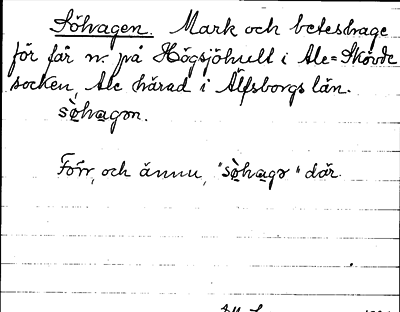 Söhagen. Mark och beteshage
för får n. på Högsjöhult i Ale-Skövde
socken, Ale härad i Älfsborgs län.
sö̀hagɘn.
Förr, och ännu, "sö̀hagɘ" där.